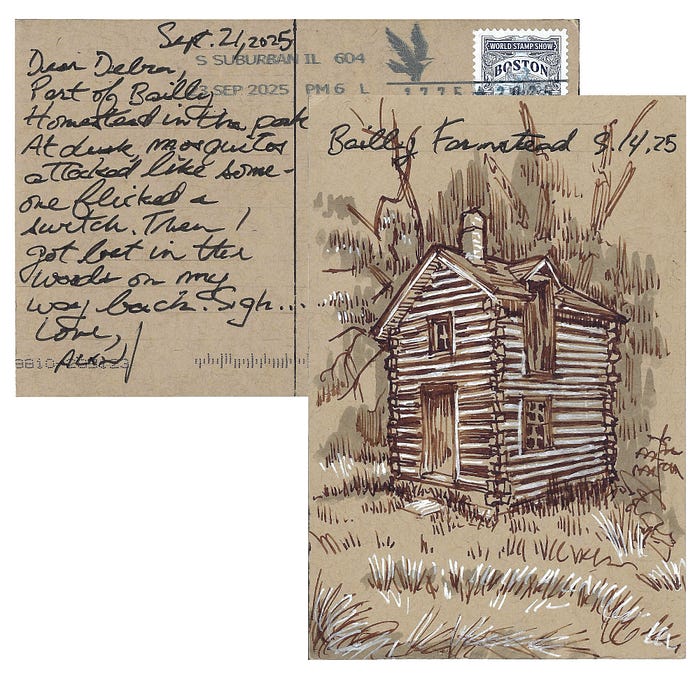 Sept. 21, 2025
S SUBURBAN IL 604
3 SEP 2025 PM 6 L
WORLD STAMP SHOW
BOSTON
Dear Debra,
Part of Bailly
Homestead in the park
At dusk, mosquitos
attacked like some-
one flicked a
switch. Then I
got lost in the
woods on my
way back. Sigh...
Love,
Bailly Farmstead 9.14.25